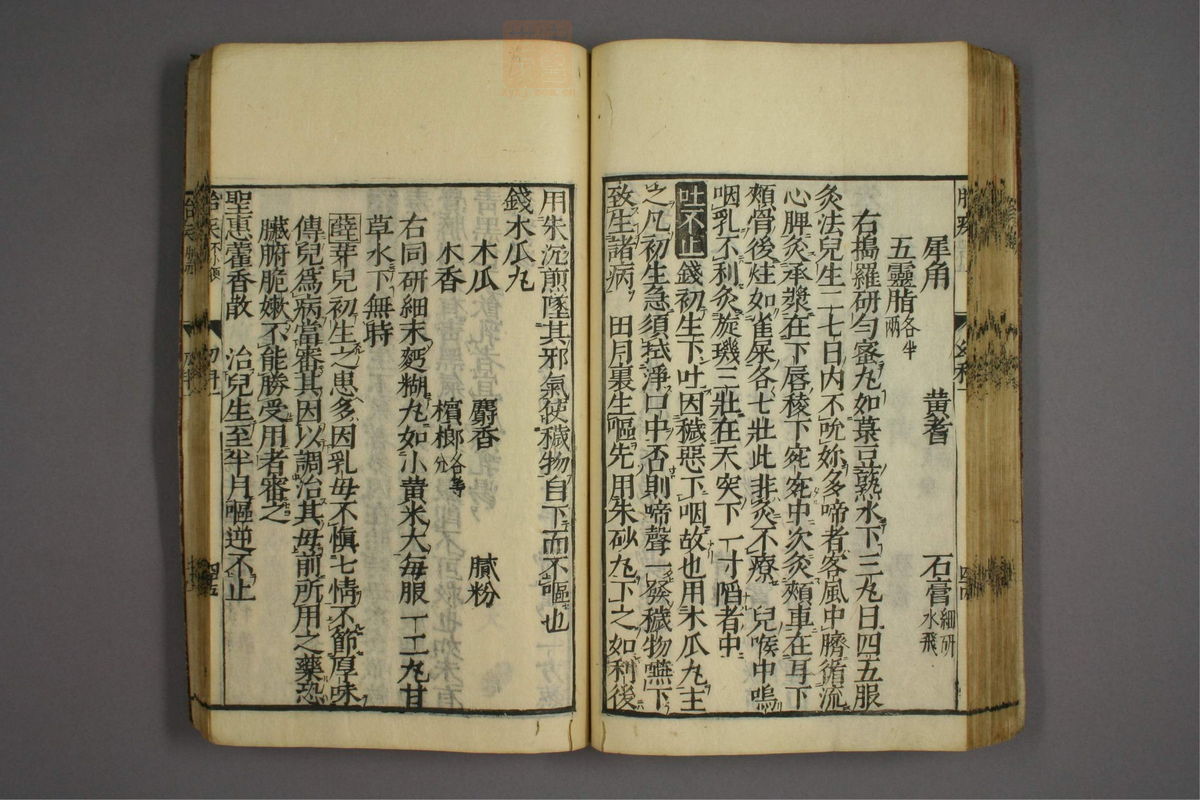 犀角 黄耆 石膏細研水飛
五靈脂各半兩
右搗羅研勻蜜丸如菉豆熟水下三丸日四五服
灸法兒生二七日内不吮妳多啼者客風中臍循流
心脾灸承漿在下唇稜下宛宛中次灸頰車在耳下
頰骨後炷如雀屎各七壯此非灸不療 兒喉中鳴
咽乳不利灸旋璣三壯在天突下一寸陷者中
吐不止 錢初生下吐因穢惡下咽故也用木瓜丸主
之凡初生急須拭淨口中否則啼聲一發穢物嚥下
致生諸病 田月裏生嘔先用朱砂丸下之如利後
用朱沉煎墜其邪氣使穢物自下而不嘔也
錢木瓜丸
木瓜 麝香 膩粉
木香 檳榔各等分
右同研細末麪糊丸如小黄米大每服一二丸甘
草水下無時
薛芽兒初生之患多因乳母不愼七情不節厚味
傳兒爲病當審其因以調治其母前所用之藥恐
臟腑脆嫩不能勝受用者審之
聖惠藿香散 治兒生至半月嘔逆不止